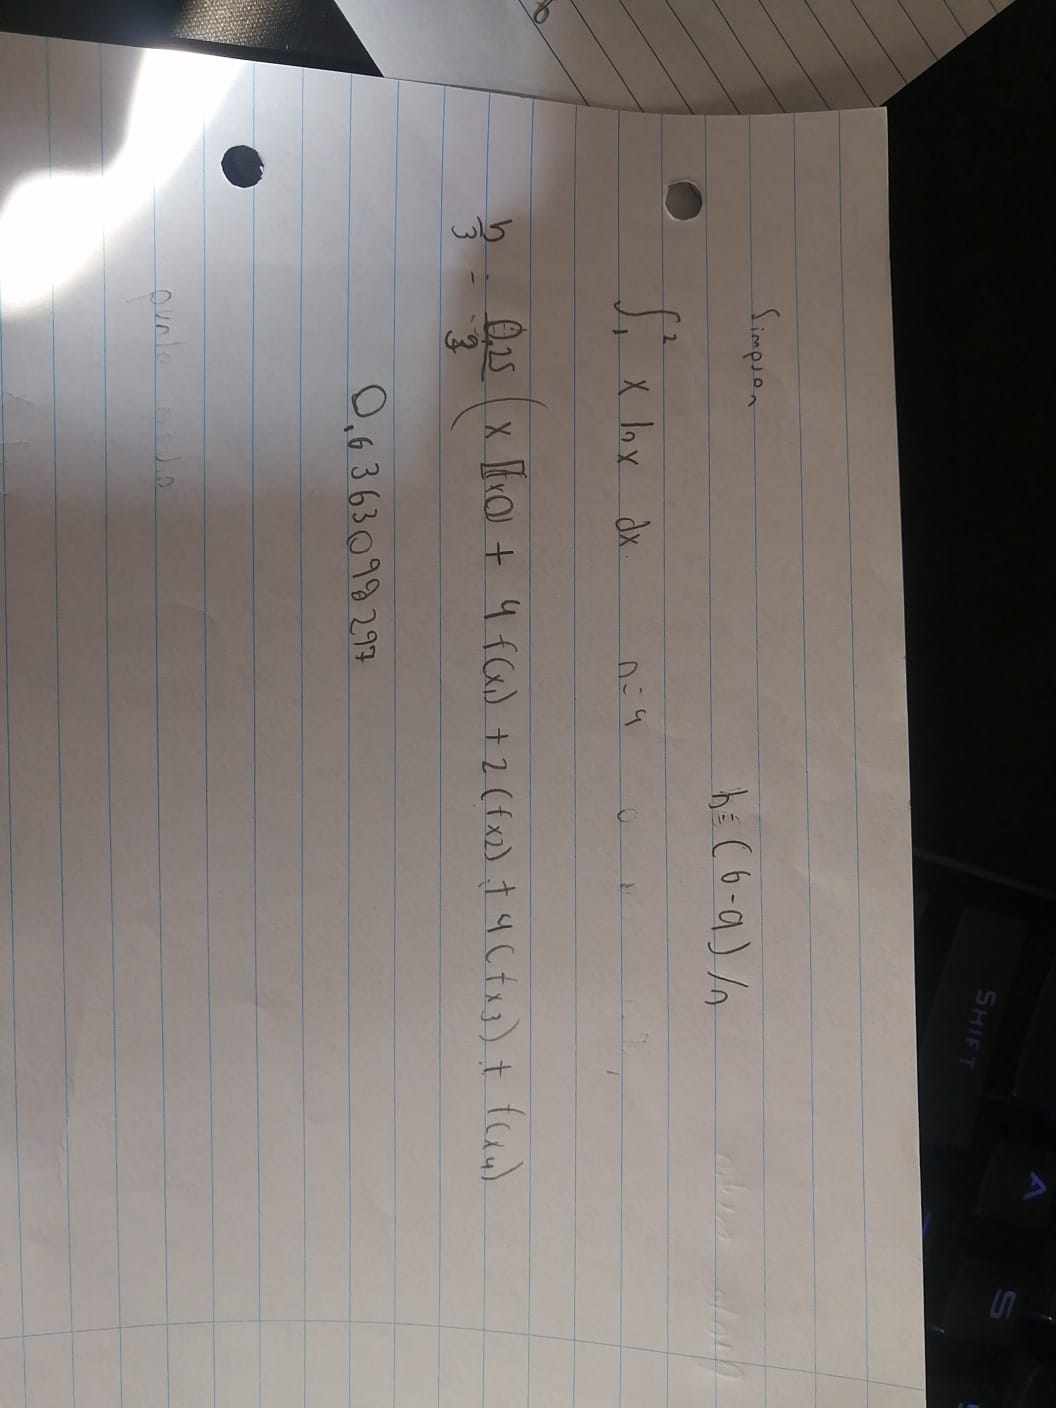 A
S
SHIFT
Simpson
h=(b-a)/n
∫₁² x ln x dx. n=4
h/3 = 0,25/3 (x [f(x0) + 4f(x₁) + 2(fx2) + 4(fx3) + f(x₄)
0,6363098297
punto medio